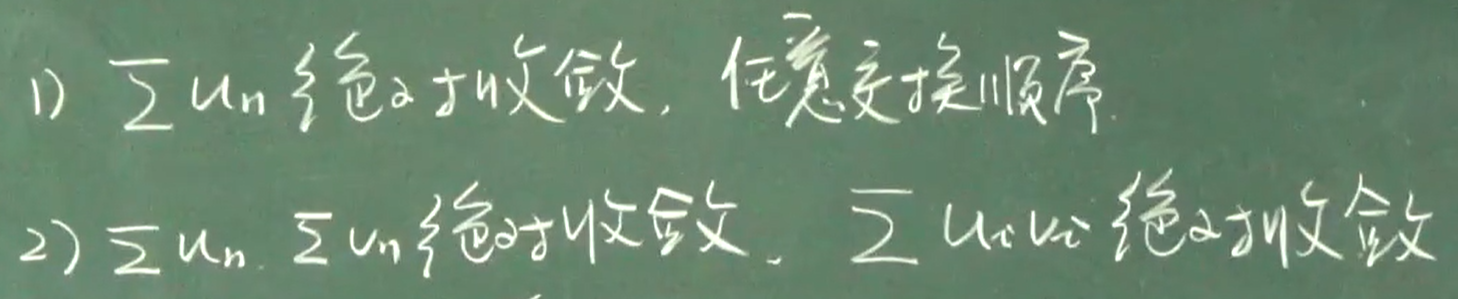 1) ∑uₙ绝对收敛, 任意交换顺序.
2) ∑uₙ. ∑vₙ绝对收敛. ∑uᵢvᵢ绝对收敛